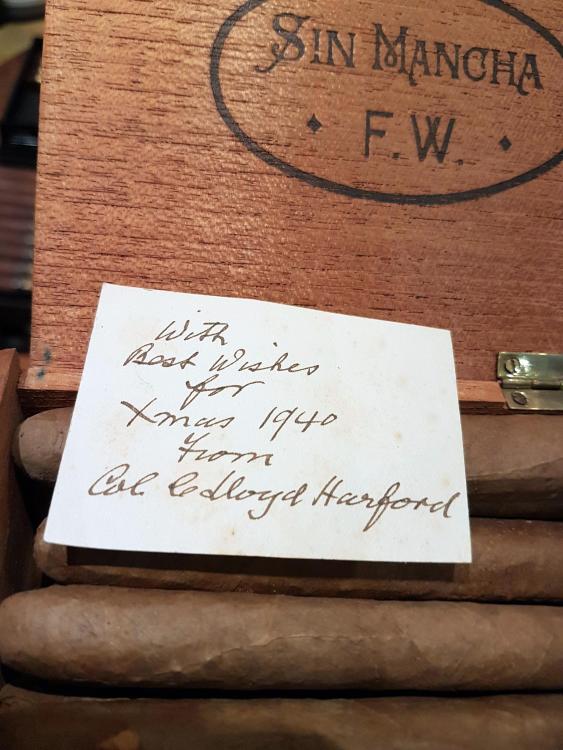 Sin Mancha
F.W.
With
Best Wishes
for
Xmas 1940
From
Col Lloyd Harford